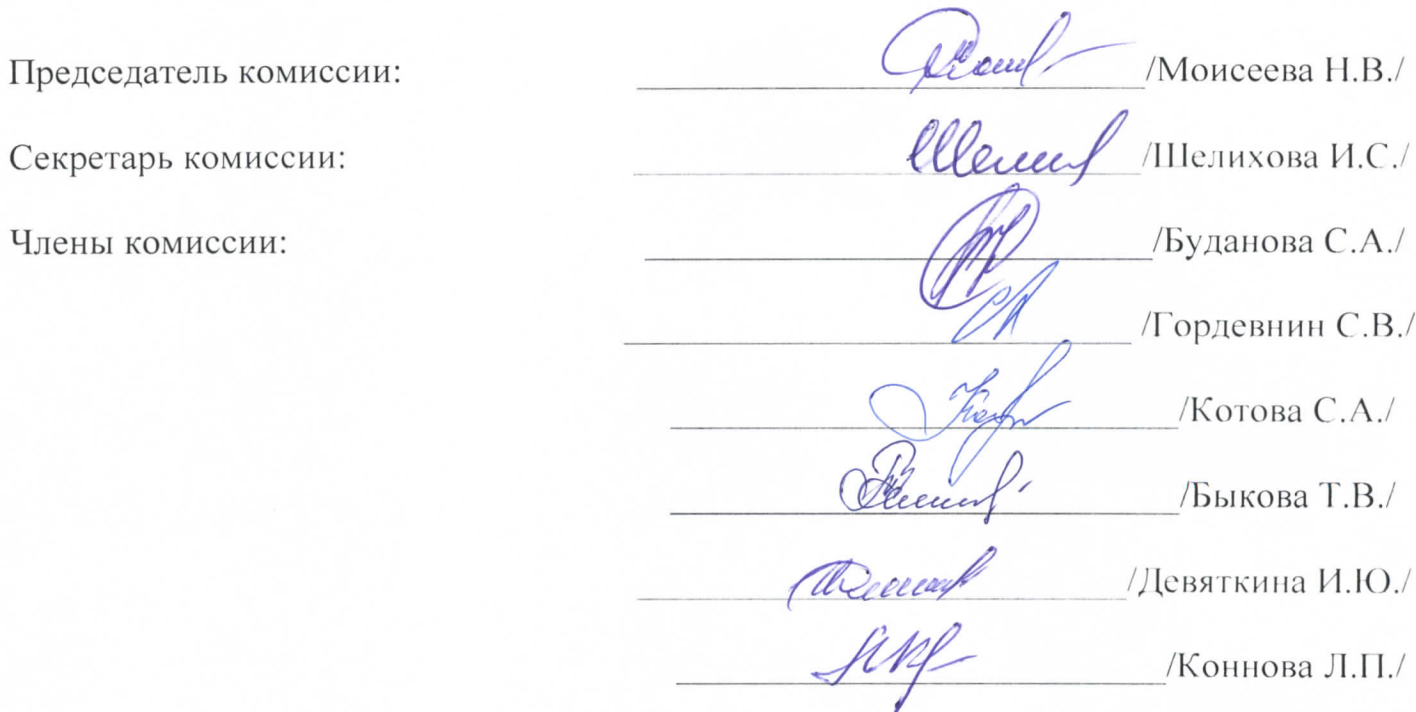 Председатель комиссии: /Моисеева Н.В./
Секретарь комиссии: /Шелихова И.С./
Члены комиссии: /Буданова С.А./
/Гордевнин С.В./
/Котова С.А./
/Быкова Т.В./
/Девяткина И.Ю./
/Коннова Л.П./